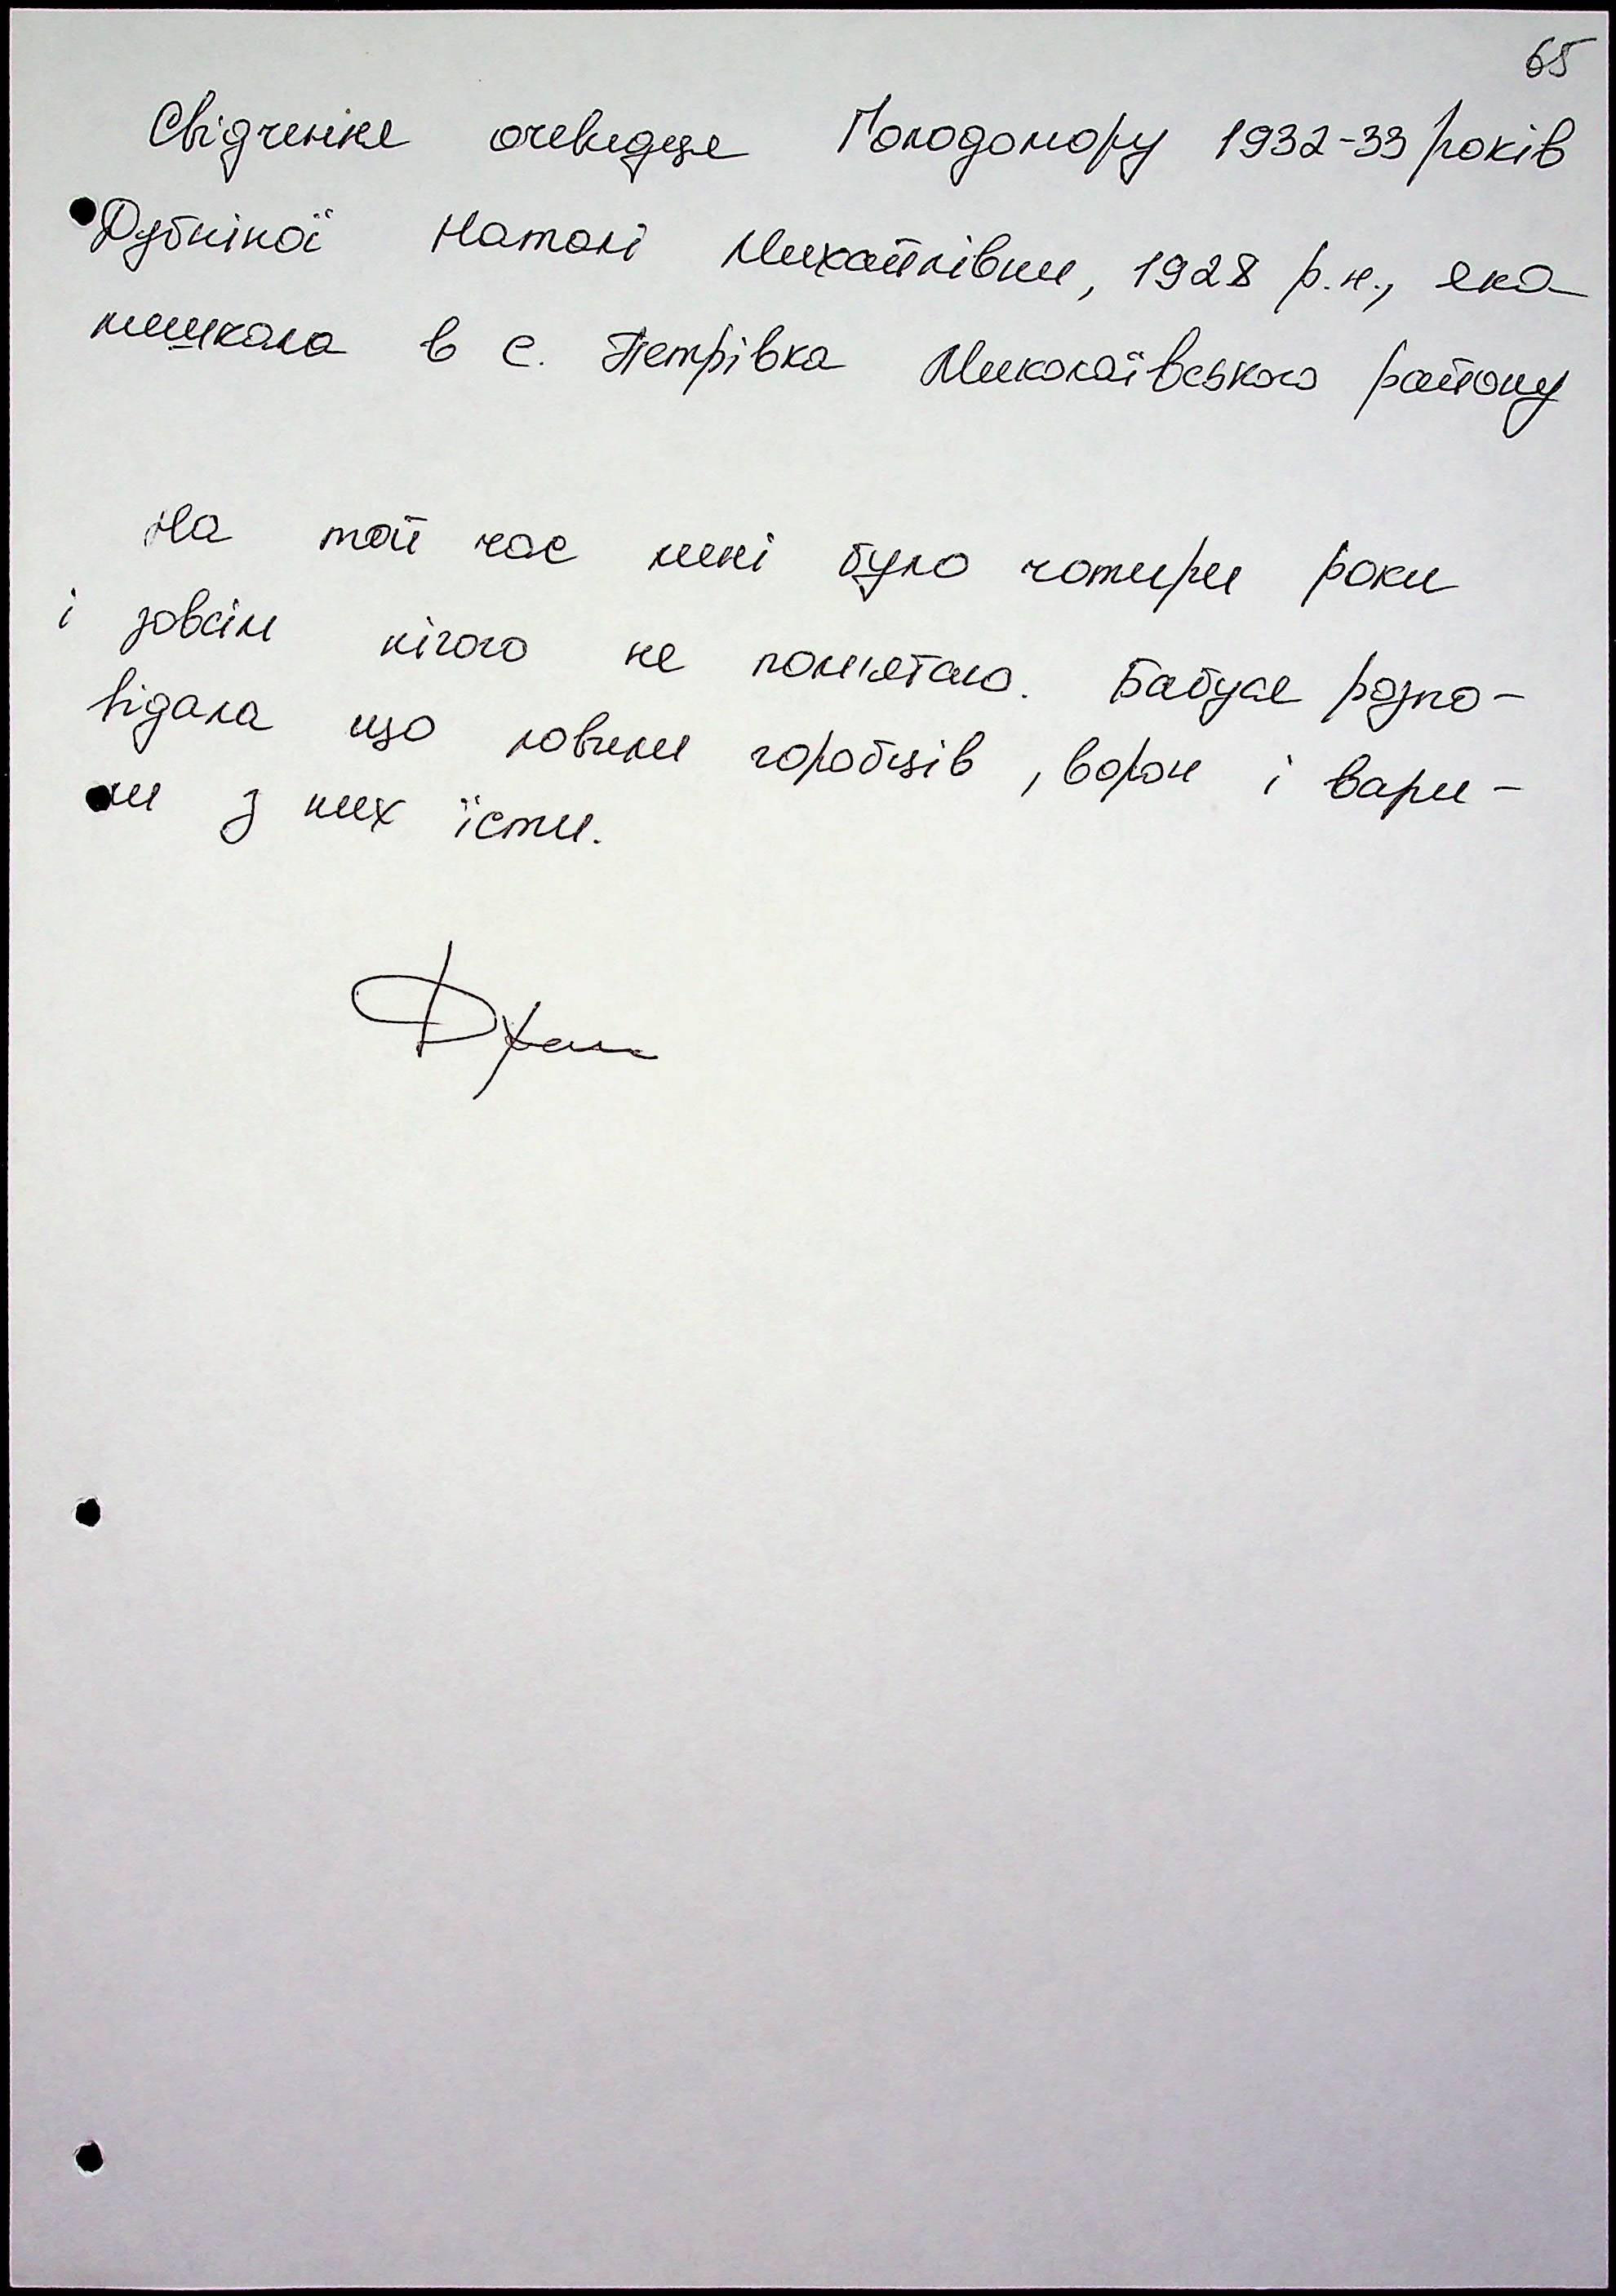 65
Свідчення очевидця Голодомору 1932-33 років
Дубкіної Наталі Михайлівни, 1928 р.н., яка
мешкала в с. Петрівка Миколаївського району
На той час мені було чотири роки
і зовсім нічого не пом'ятаю. Бабуся розпо-
відала що ловили горобців, ворон і вари-
ли з них їсти.